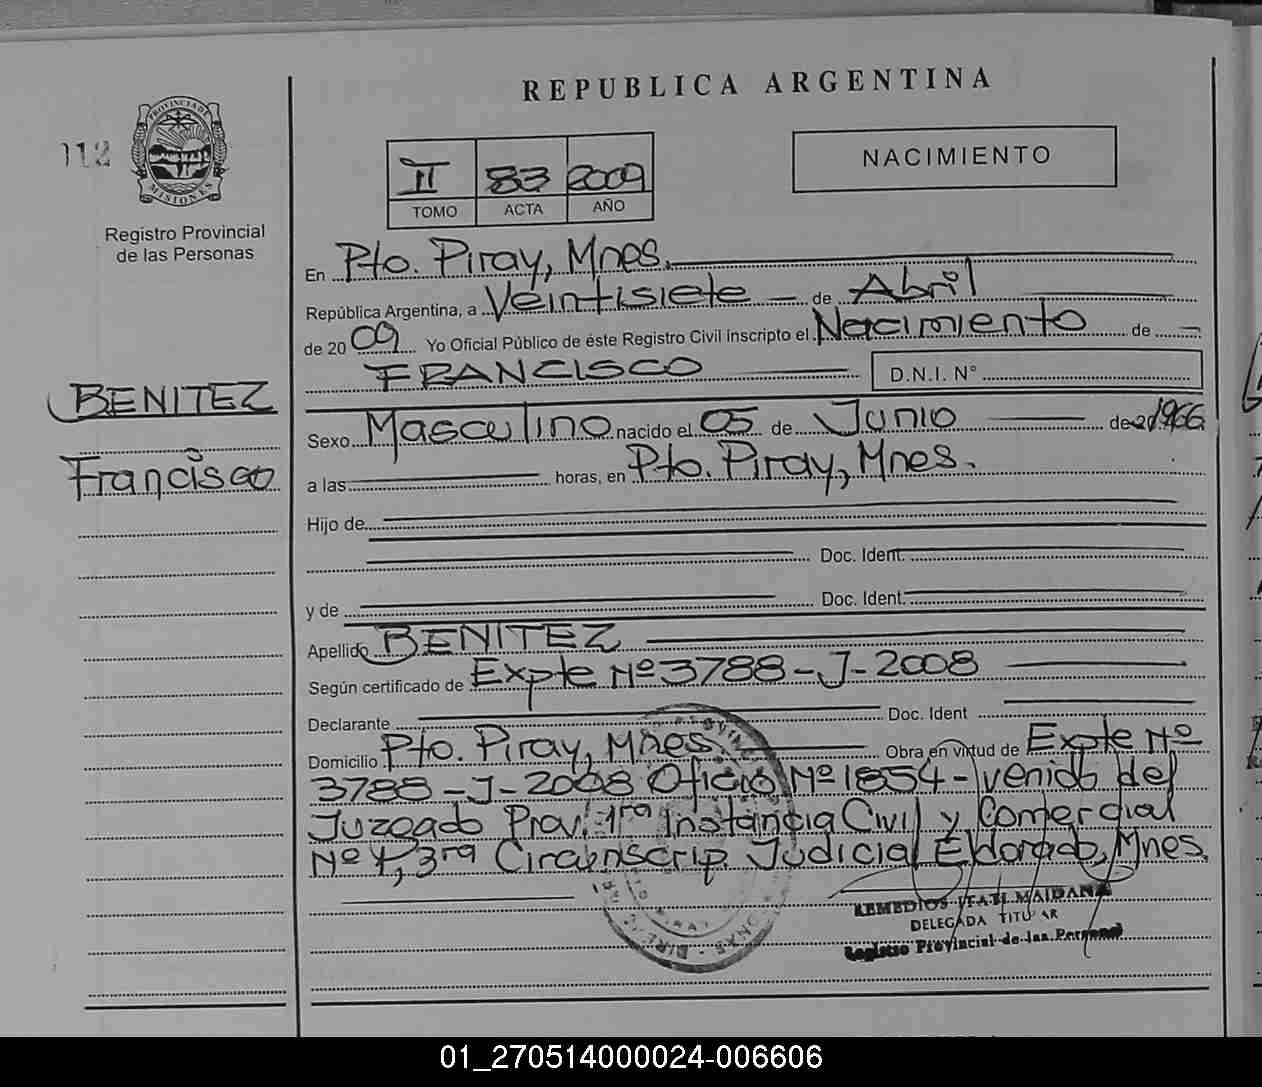 REPUBLICA ARGENTINA
112
PROVINCIA DE
MISIONES
Registro Provincial
de las Personas
II 83 2009
TOMO ACTA AÑO
NACIMIENTO
En Pto. Piray, Mnes.
República Argentina, a Veintisiete de Abril
de 2009 Yo Oficial Público de éste Registro Civil inscripto el Nacimiento de
FRANCISCO D.N.I. N°
BENITEZ
Francisco
Sexo Masculino nacido el 05 de Junio de 1966
a las horas, en Pto. Piray, Mnes.
Hijo de
Doc. Ident.
y de Doc. Ident.
Apellido BENITEZ
Según certificado de Expte Nº 3788-J-2008
Declarante Doc. Ident
Domicilio Pto. Piray, Mnes. Obra en virtud de Expte Nº
3788-J-2008 Oficio Nº 1854- venido del
Juzgado Prov. 1ra Instancia Civil y Comercial
Nº 1, 3ra Circunscrip. Judicial Eldorado, Mnes.
REMEDIOS ITATI MAIDANA
DELEGADA TITULAR
Registro Provincial de las Personas
01_270514000024-006606